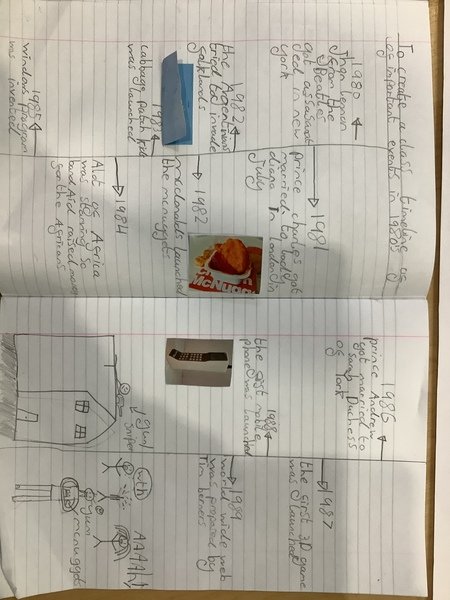 To create a class timeline of
1980
Jhon lemon
from the
Beatles
got assasinat
ed in new
york
1981
prince charles got
married to lady
diana In London in
July
1982
the Argentinians
tried to invade
falklands
1982
mcdonalds launched
the mcnuggets
McNugg
cabbage patch kids
was launched
1984
Alot of Africa
was starving so
band Aid raised money
for the Africans
1985
windows program
was invented
1986
prince Andrew
got married to
Duchess
of York
1987
the first 3D game
was launched
1988
the first mobile
phone was launched
1989
world wide web
was proposed by
Tim berners
gun
sniper
yum
mcnuggets